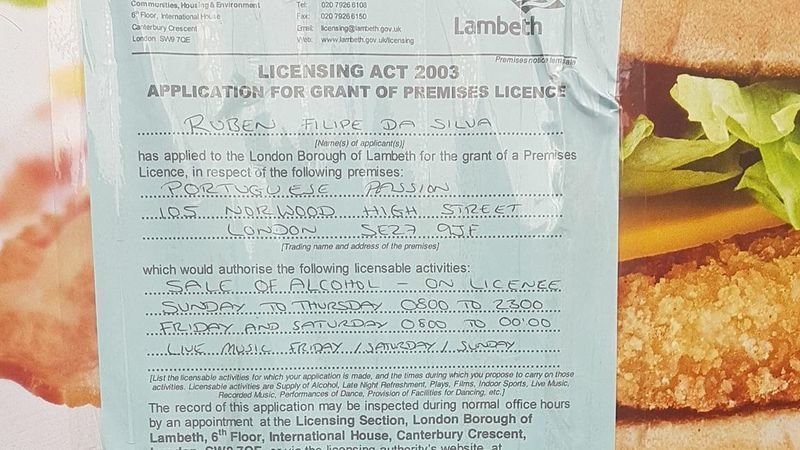 Communities, Housing & Environment
6th Floor, International House
Canterbury Crescent
London SW9 7QE
Tel: 020 7926 6108
Fax: 020 7926 6150
Email: licensing@lambeth.gov.uk
Web: www.lambeth.gov.uk/licensing
Lambeth
Premises notice
LICENSING ACT 2003
APPLICATION FOR GRANT OF PREMISES LICENCE
RUBEN FILIPE DA SILVA
[Name(s) of applicant(s)]
has applied to the London Borough of Lambeth for the grant of a Premises
Licence, in respect of the following premises:
PORTUGUESE PASSION
105 NORWOOD HIGH STREET
LONDON SE27 9JF
[Trading name and address of the premises]
which would authorise the following licensable activities:
SALE OF ALCOHOL - ON LICENCE
SUNDAY TO THURSDAY 0800 TO 2300
FRIDAY AND SATURDAY 0800 TO 00:00
LIVE MUSIC FRIDAY / SATURDAY / SUNDAY
[List the licensable activities for which your application is made, and the times during which you propose to carry on those
activities. Licensable activities are Supply of Alcohol, Late Night Refreshment, Plays, Films, Indoor Sports, Live Music,
Recorded Music, Performances of Dance, Provision of Facilities for Dancing, etc.]
The record of this application may be inspected during normal office hours
by an appointment at the Licensing Section, London Borough of
Lambeth, 6th Floor, International House, Canterbury Crescent,
London SW9 7QE or via the licensing authority's website at